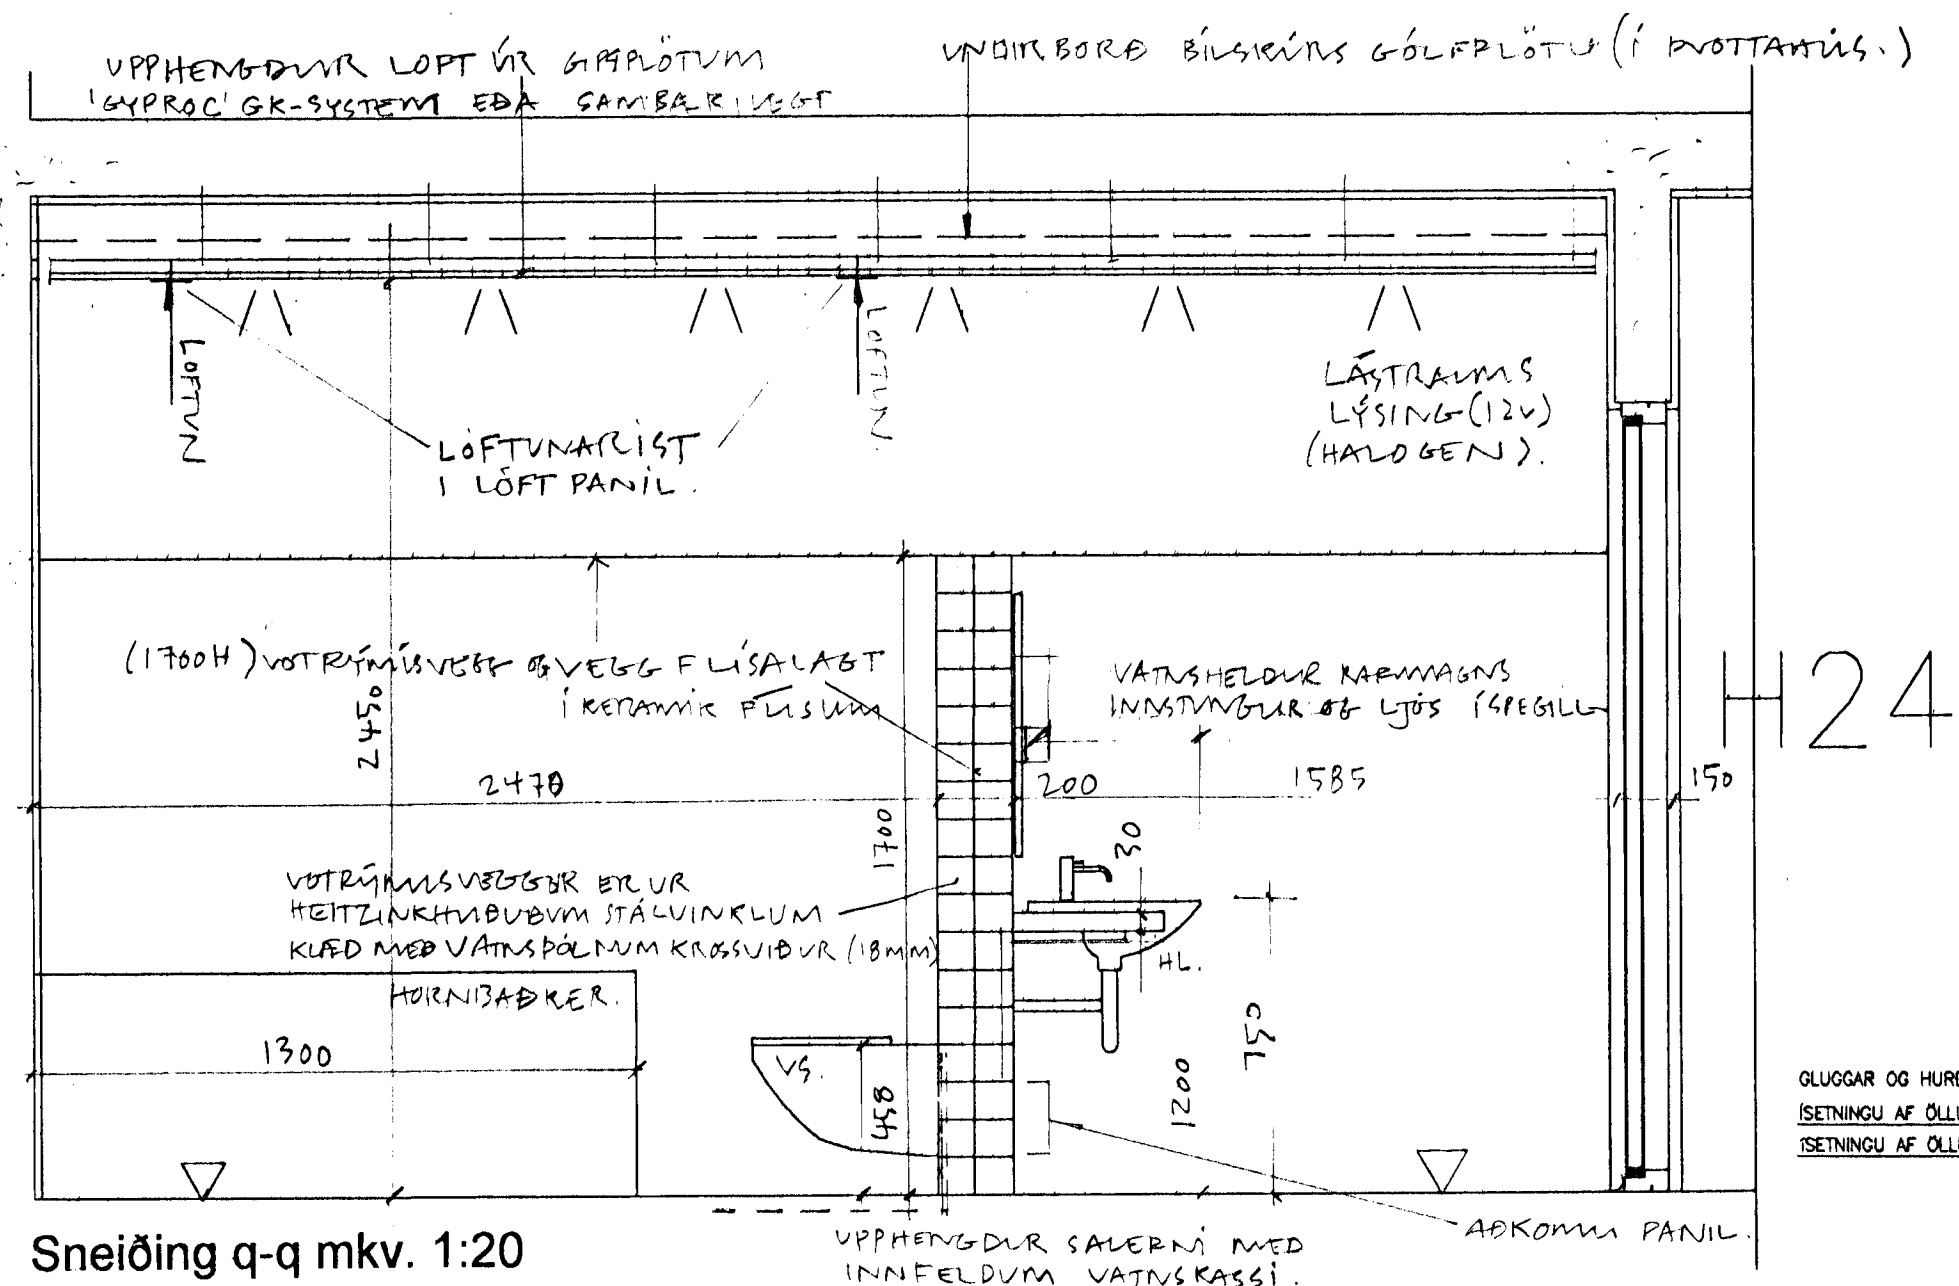 UPPHENGDUR LOFT ÚR GIPSPLÖTUM
'GYPROC' GK-SYSTEM EÐA SAMBÆRILEGT
UNDIRBORÐ BÍLSKÚRS GÓLFPLÖTU (Í ÞVOTTAHÚS.)
LOFTUN
LOFTUN.
LOFTUNARIST
I LOFT PANIL.
LÁSTRAUMS
LÝSING (12V)
(HALOGEN).
(1700H) VOTRÝMISVEGG OG VEGG FLÍSALAGT
Í KERAMIK FLISUM
VATNSHELDUR RAFMAGNS
INNSTUNGUR OG LJÓS Í SPEGILL
H24
2450
2470
200
1585
150
1700
30
VOTRÝMISVEGGUR ER UR
HEITZINKHUÐUÐUM STÁLVINKLUM
KLÆD MEÐ VATNSÞÓLNUM KROSSVIÐUR (18MM)
HL.
HORNBAÐKER.
1300
VS.
458
1200
750
GLUGGAR OG HURÐ
ÍSETNINGU AF ÖLLU
ÍSETNINGU AF ÖLLU
AÐKOMU PANIL.
Sneiðing q-q mkv. 1:20
UPPHENGDUR SALERNI MED
INNFELDUM VATNSKASSI.